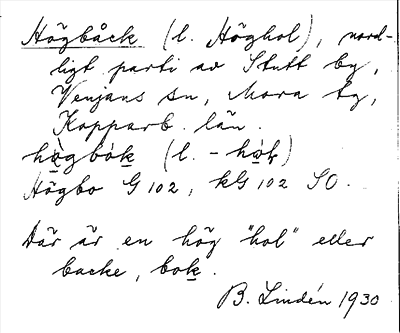 Högbåck (l. Höghol), nord-
ligt parti av Stutt by,
Venjans sn, Mora tg,
Kopparb. län.
hög̀bók (l. - hól)
Högbo G 102, kG 102 SO.
Där är en hög "hol" eller
backe, bok.
B. Lindén 1930